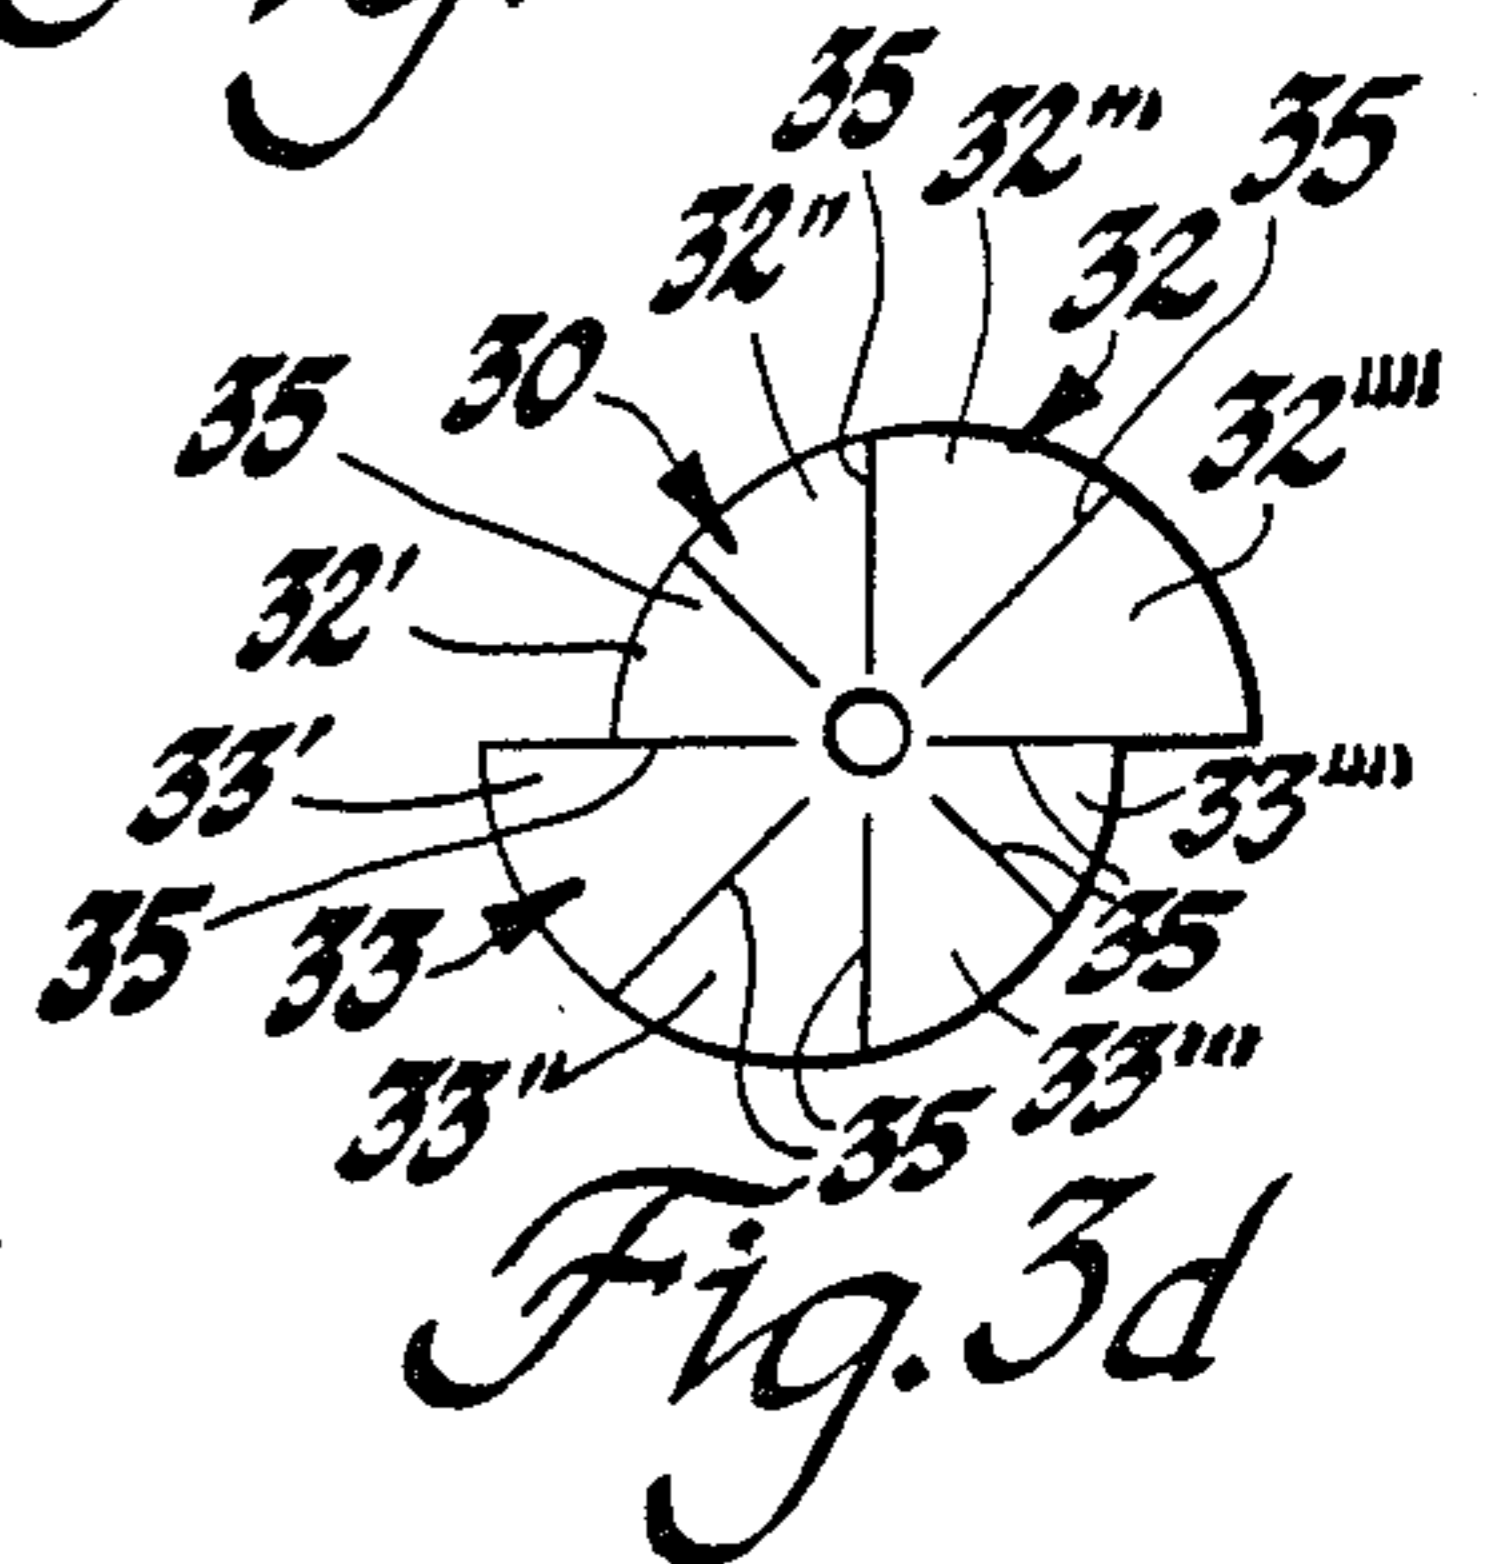 35
32'''
35
32''
32
30
32''''
35
32'
33'
33''''
35
33
35
33'''
33''
35
Fig. 3d